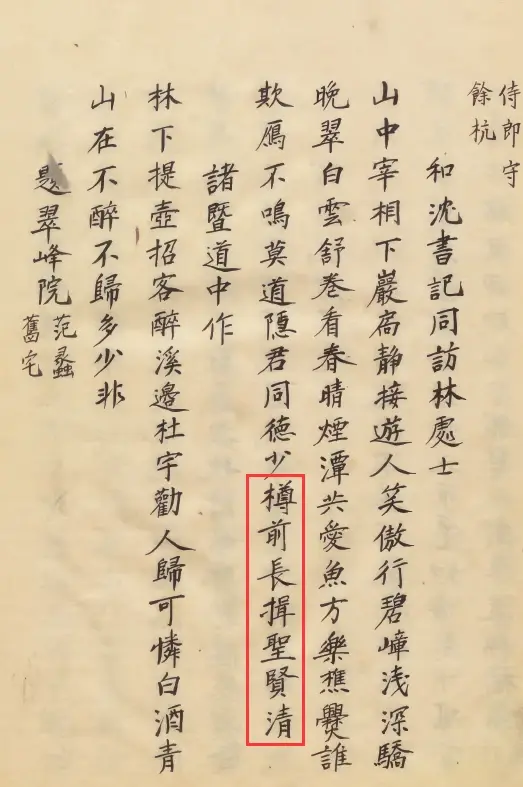 侍郎守
餘杭
和沈書記同訪林處士
山中宰相下巖扃靜接遊人笑傲行碧嶂浅深驕
晚翠白雲舒卷看春晴煙潭共愛魚方樂樵爨誰
欺鴈不鳴莫道隠君同德少樽前長揖聖賢清
諸暨道中作
林下提壺招客醉溪邊杜宇勸人歸可憐白酒青
山在不醉不歸多少非
題翠峰院
范蠡
舊宅